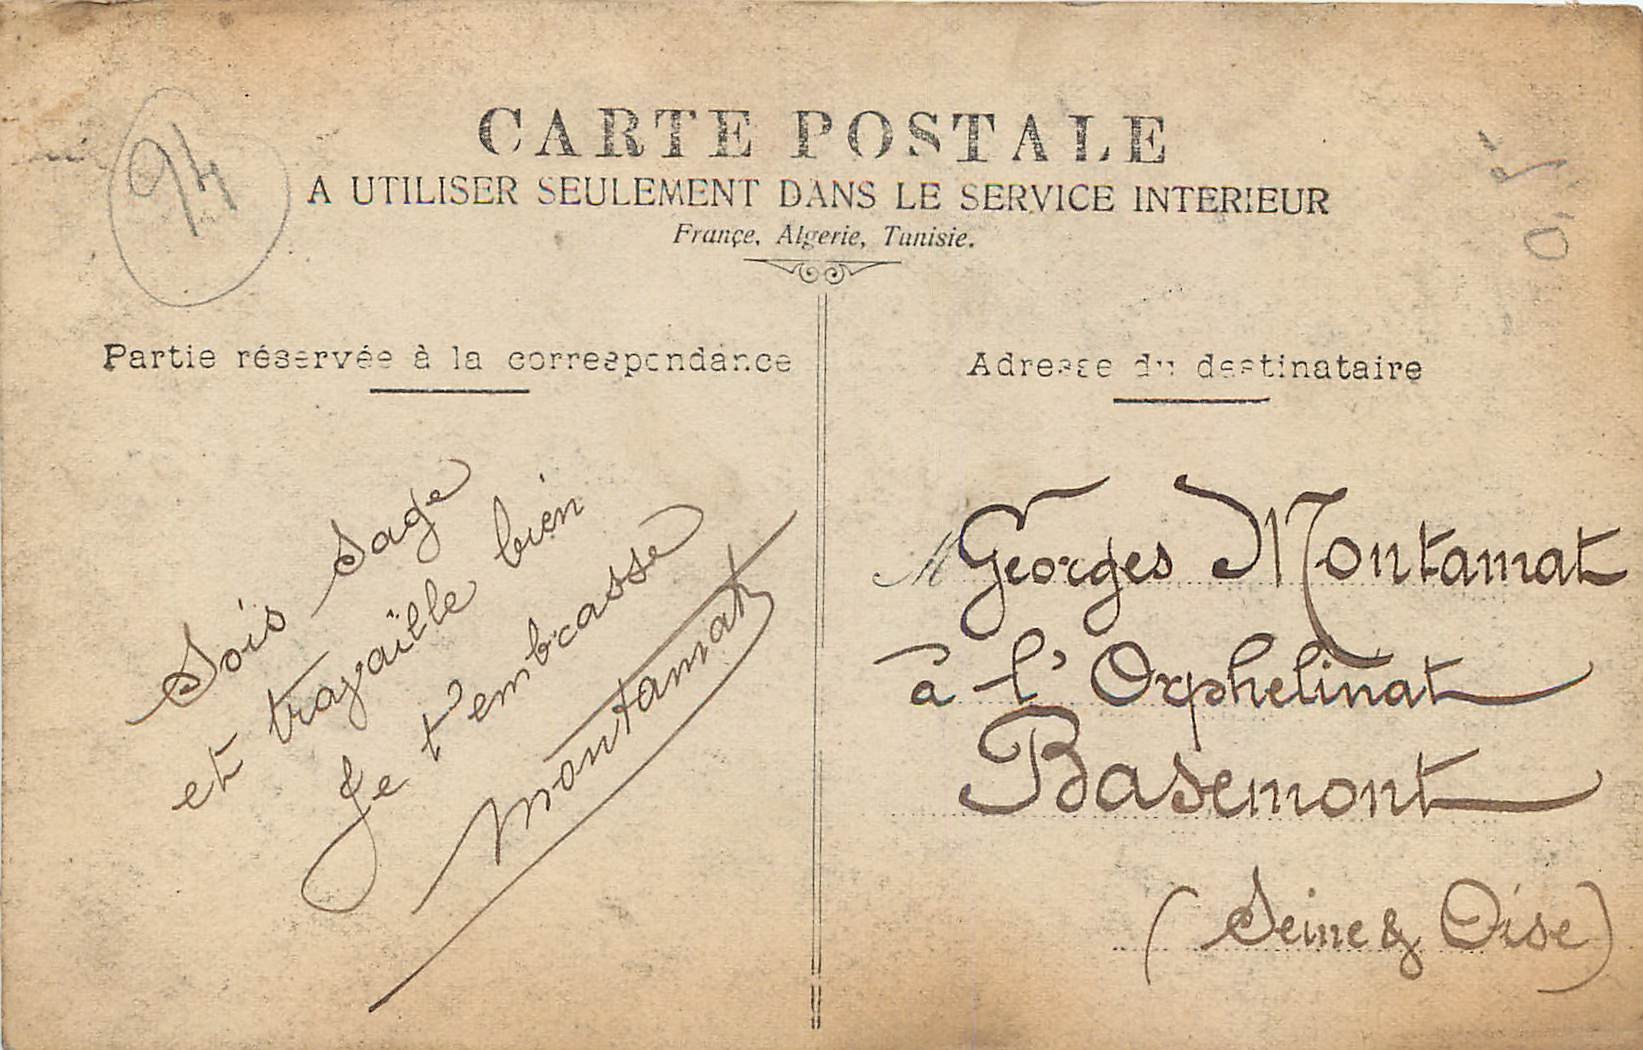 94
CARTE POSTALE
A UTILISER SEULEMENT DANS LE SERVICE INTERIEUR
Françe, Algerie, Tunisie.
Partie réservée à la correspondance
Sois sage
et travaille bien
Je t'embrasse
Montamat
Adresse du destinataire
M Georges Montamat
à l'Orphelinat
Basemont
(Seine & Oise)